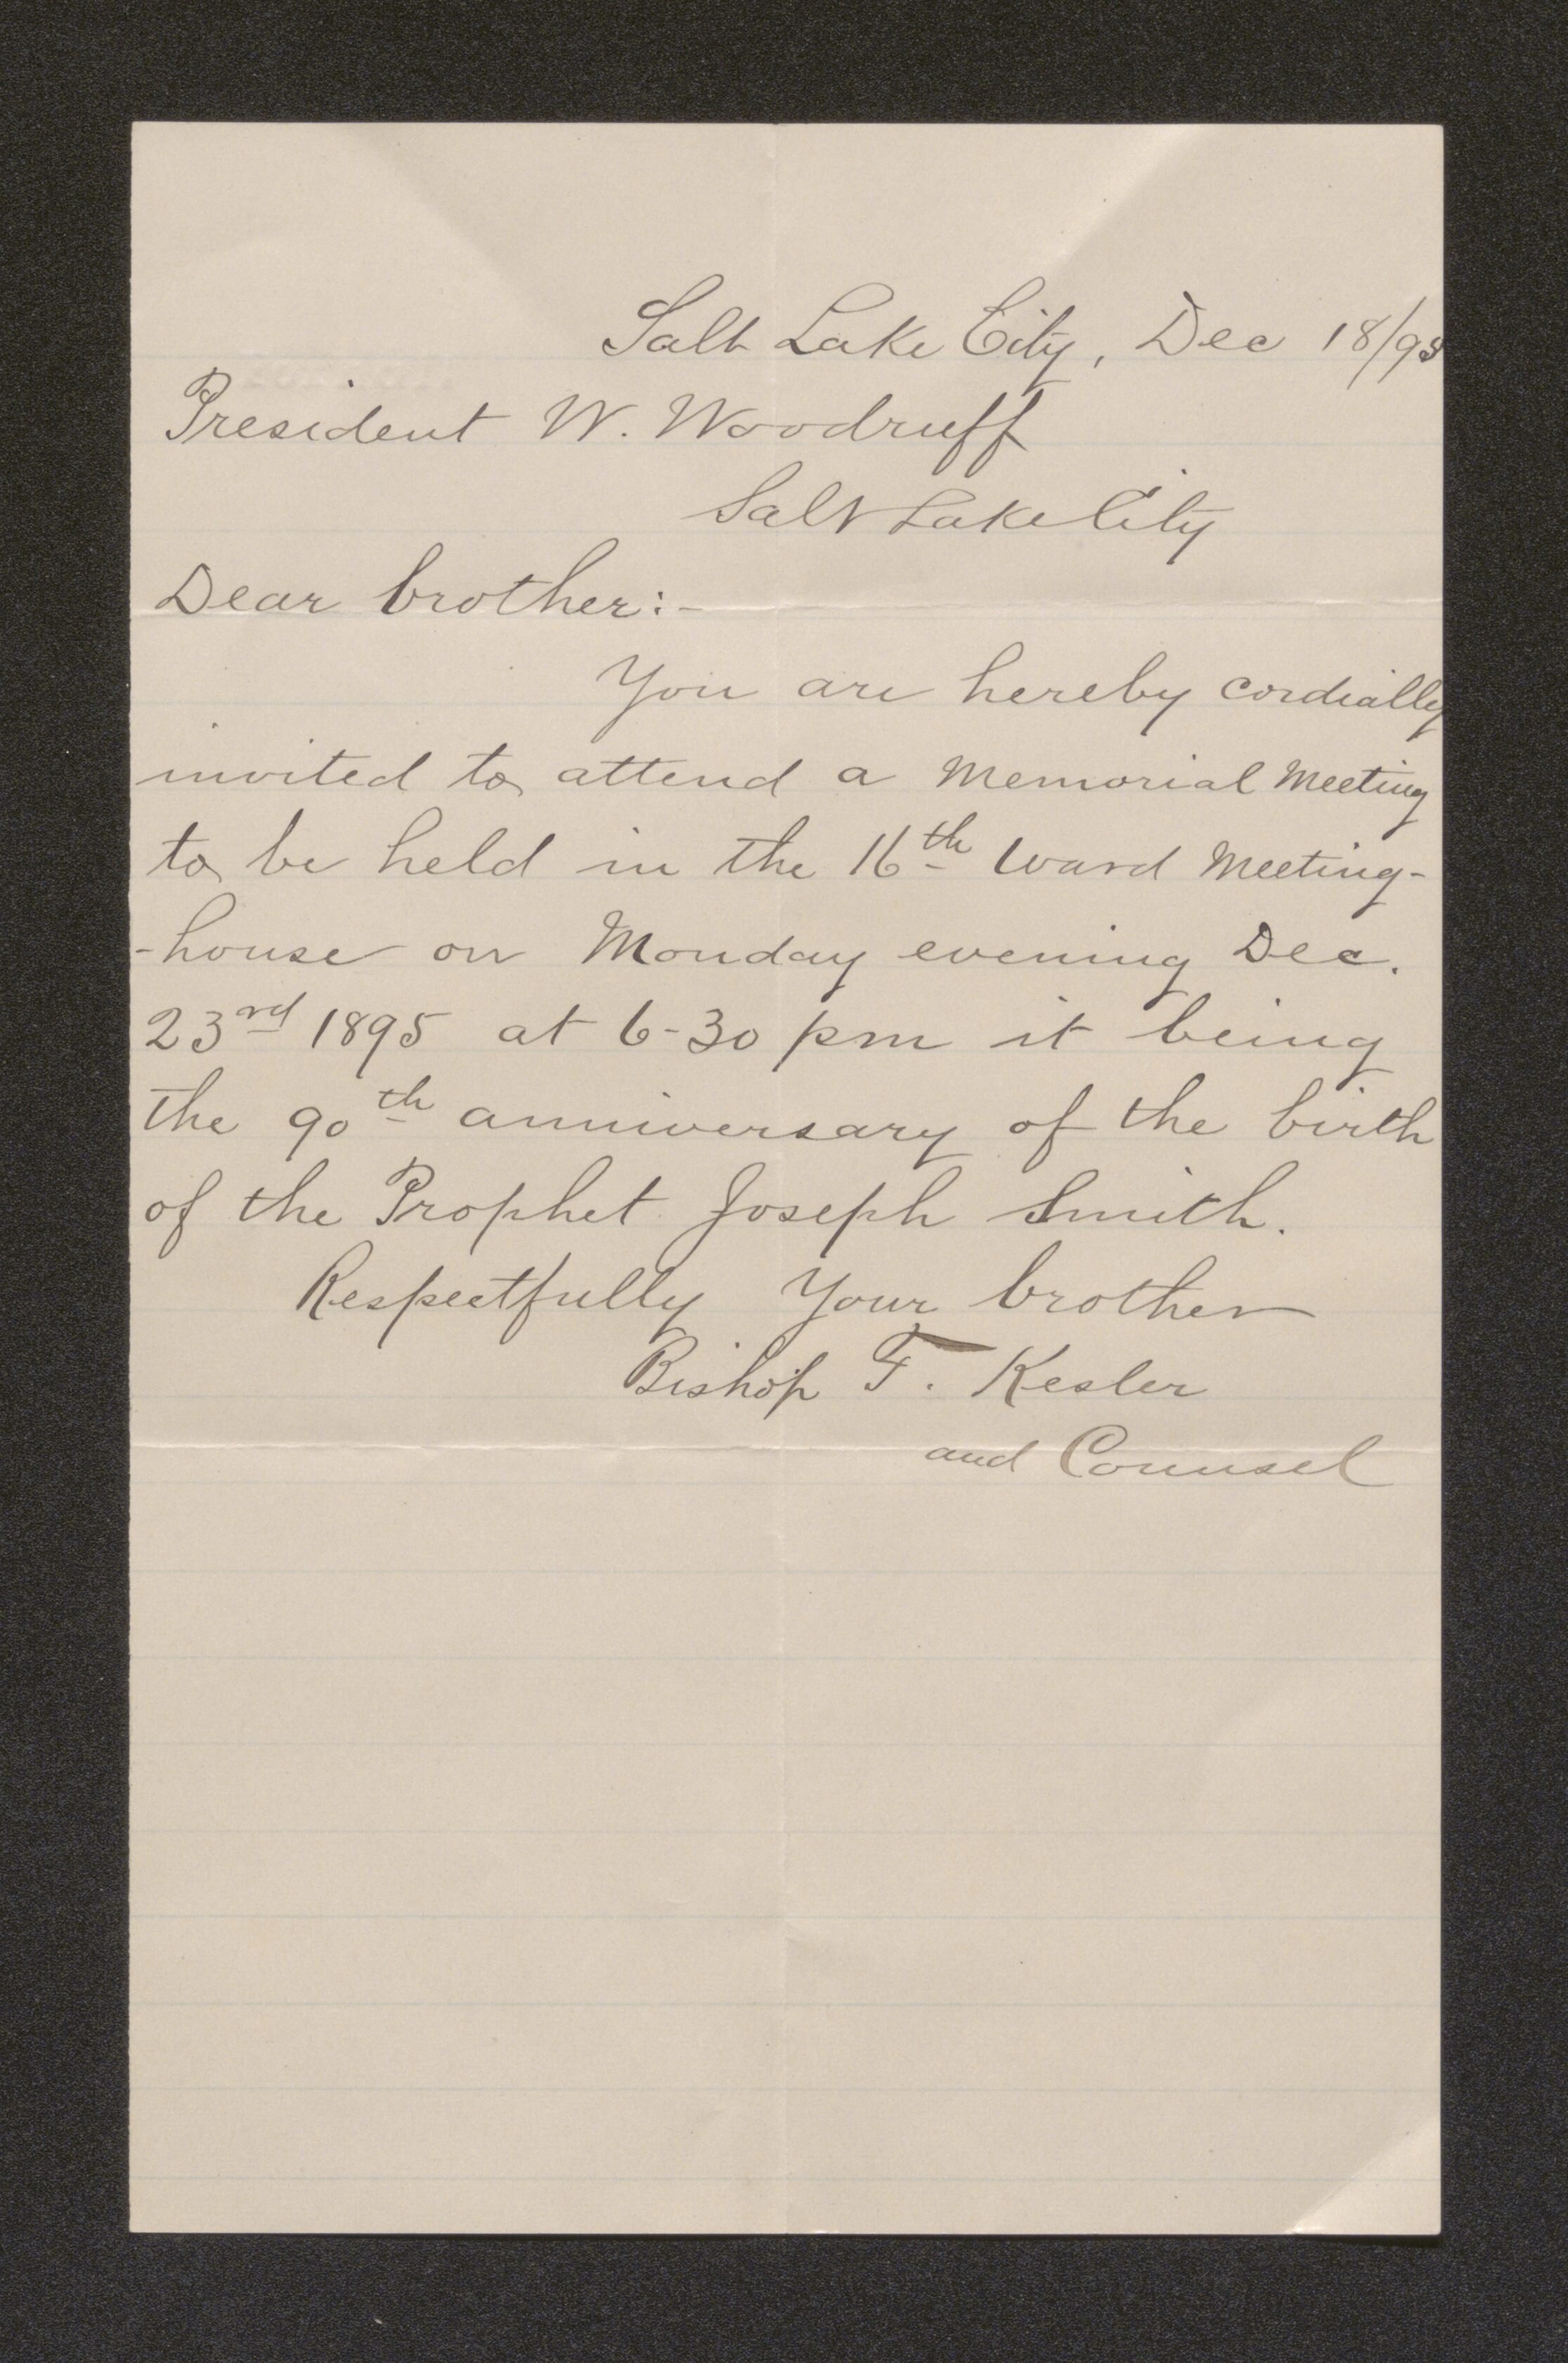 Salt Lake City, Dec 18/95
President W. Woodruff
Salt Lake City
Dear brother:-
You are hereby cordially
invited to attend a Memorial Meeting
to be held in the 16th Ward Meeting-
-house on Monday evening Dec.
23rd 1895 at 6-30 pm it being
the 90th anniversary of the birth
of the Prophet Joseph Smith.
Respectfully Your brother
Bishop F. Kesler
and Counsel